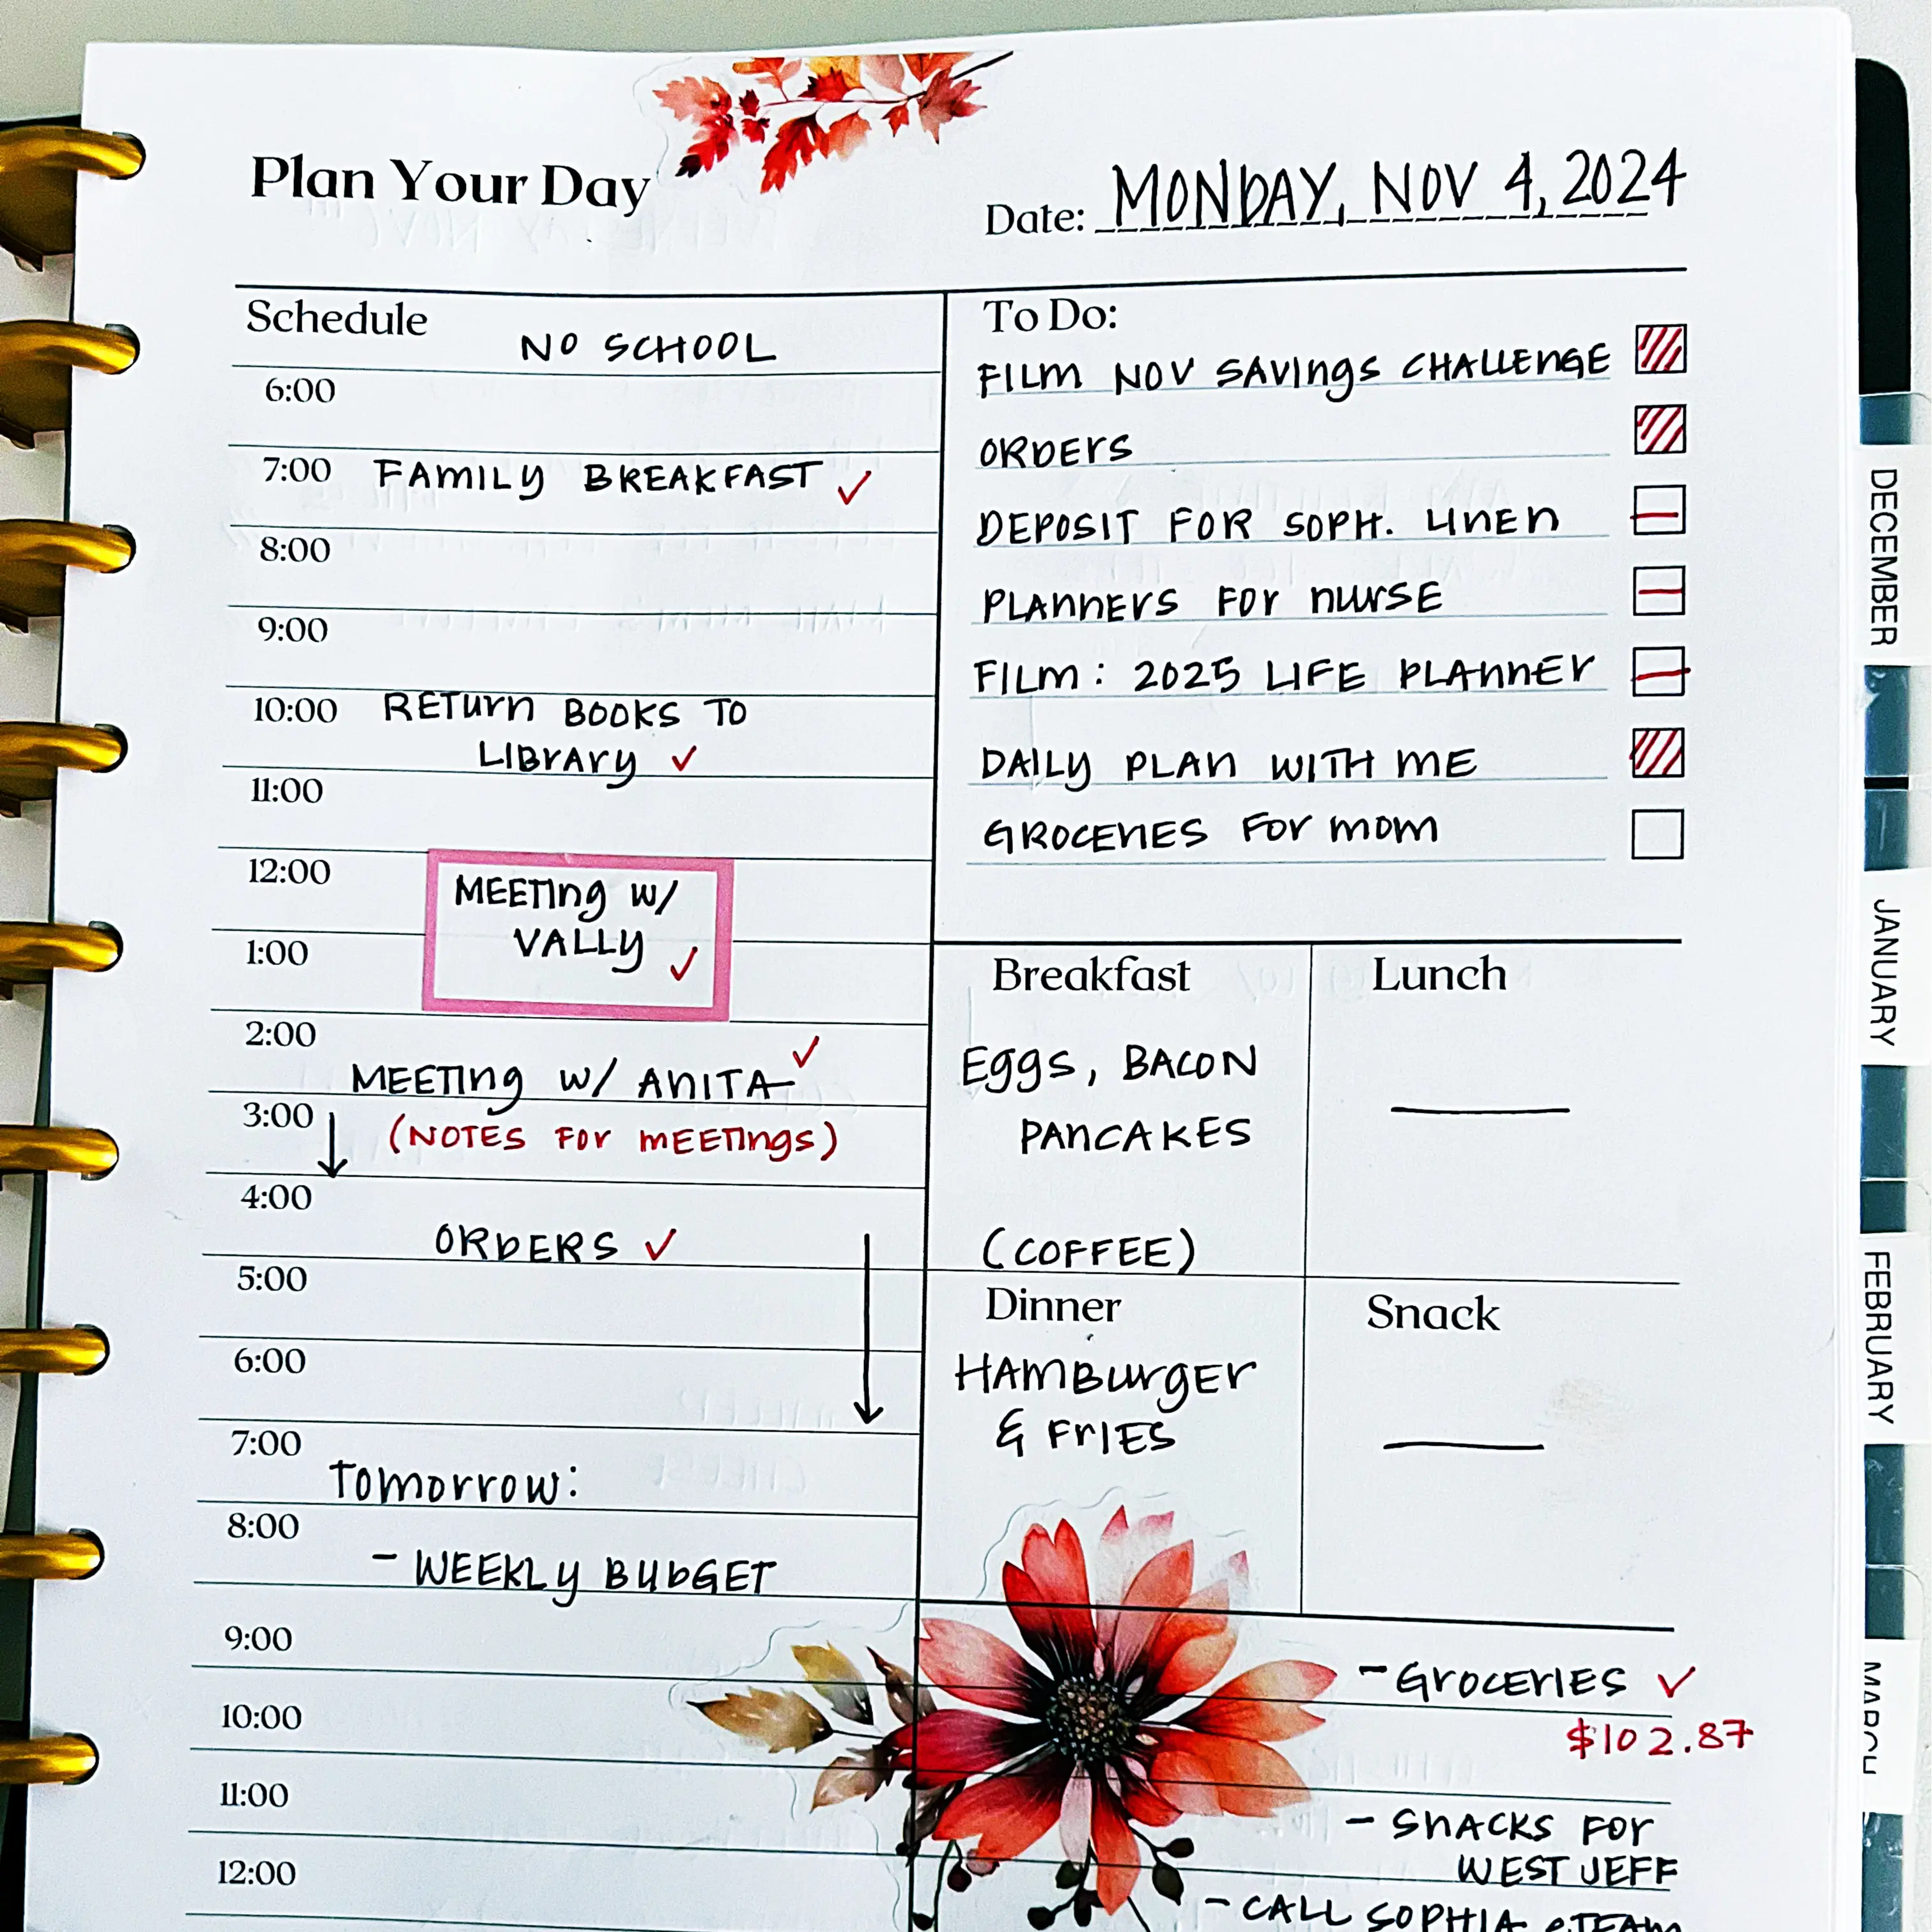 Plan Your Day
Date: MONDAY, NOV 4, 2024
Schedule
NO SCHOOL
6:00
7:00 FAMILY BREAKFAST ✓
8:00
9:00
10:00 RETURN BOOKS TO
LIBRARY ✓
11:00
12:00 MEETING W/
VALLY ✓
1:00
2:00
MEETING W/ ANITA ✓
3:00 (NOTES FOR MEETINGS)
4:00
ORDERS ✓
5:00
6:00
7:00
TOMORROW:
8:00
- WEEKLY BUDGET
9:00
10:00
11:00
12:00
To Do:
FILM NOV SAVINGS CHALLENGE
ORDERS
DEPOSIT FOR SOPH. LINEN
PLANNERS FOR NURSE
FILM: 2025 LIFE PLANNER
DAILY PLAN WITH ME
GROCERIES FOR MOM
Breakfast
EGGS, BACON
PANCAKES
(COFFEE)
Lunch
Dinner
HAMBURGER
& FRIES
Snack
- GROCERIES ✓
$102.87
- SNACKS FOR
WEST JEFF
- CALL SOPHIA
DECEMBER
JANUARY
FEBRUARY
MARCH